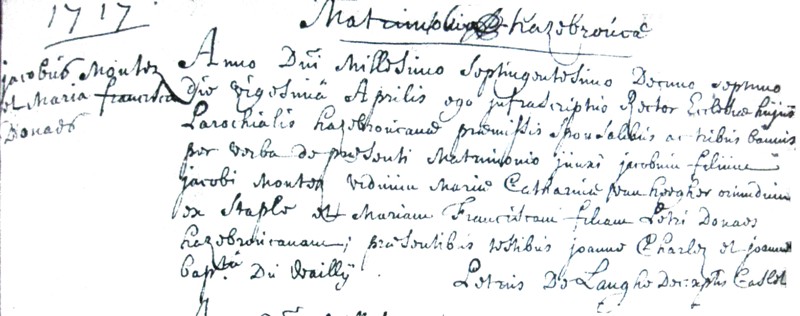 1717
Matrimonia hazebroucæ
jacobus Montez
et Maria francisca
Donaes
Anno Dñi Millesimo Septingentesimo Decimo Septimo
die vigesimâ Aprilis ego infrascriptus Rector Ecclesiæ hujus
Parochialis hazebroucanæ præmissis sponsalibus ac tribus bannis
per verba de præsenti Matrimonio junxi jacobum filium
jacobi Montez viduum Mariæ Catharinæ van heegher oriundum
ex Staple et Mariam Franciscam filiam Petri Donaes
hazebroucanam; præsentibus testibus joanne Charlez et joanne
bapta Du Wailly. Petrus De Langhe